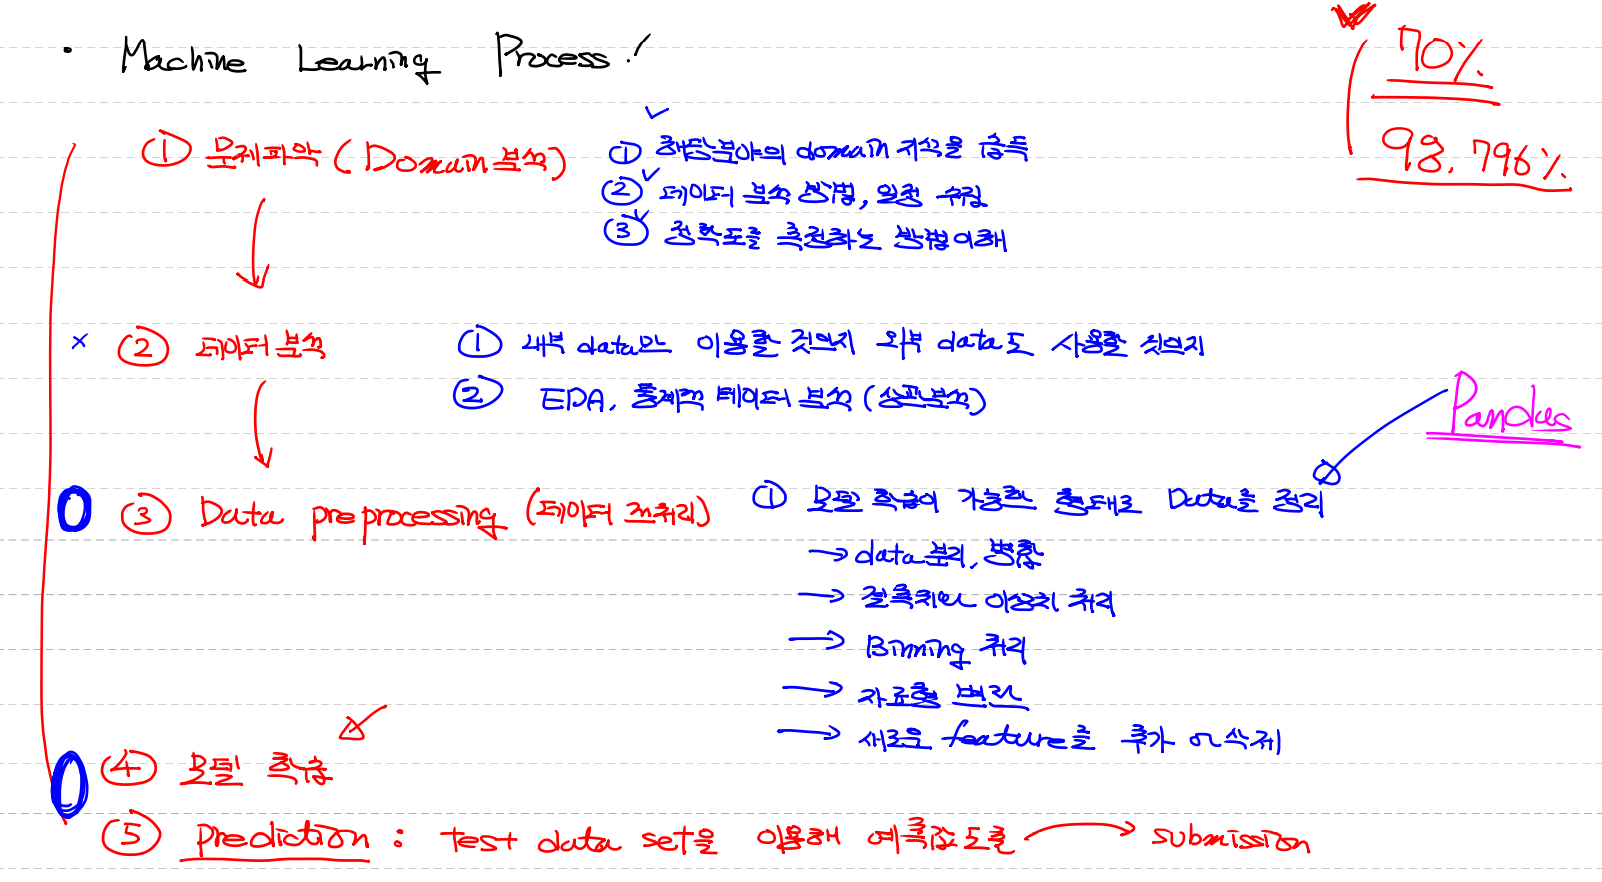 · Machine Learning Process!
70%
98.796%
① 문제파악 (Domain분석)
① 해당분야의 domain 지식을 습득
② 데이터 분석 방법, 일정 수립
③ 정확도를 측정하는 방법이해
② 데이터 분석
① 내부 data만 이용할 것인지 외부 data도 사용할 것인지
② EDA, 통계적 데이터 분석 (상관분석)
Pandas
③ Data preprocessing (데이터 전처리)
① 모델 학습이 가능한 형태로 Data를 정리
→ data분리, 병합
→ 결측치 이상치 처리
→ Binning 처리
→ 자료형 변환
→ 새로운 feature를 추가 or 삭제
④ 모델 학습
⑤ prediction : test data set을 이용해 예측값 도출 → submission